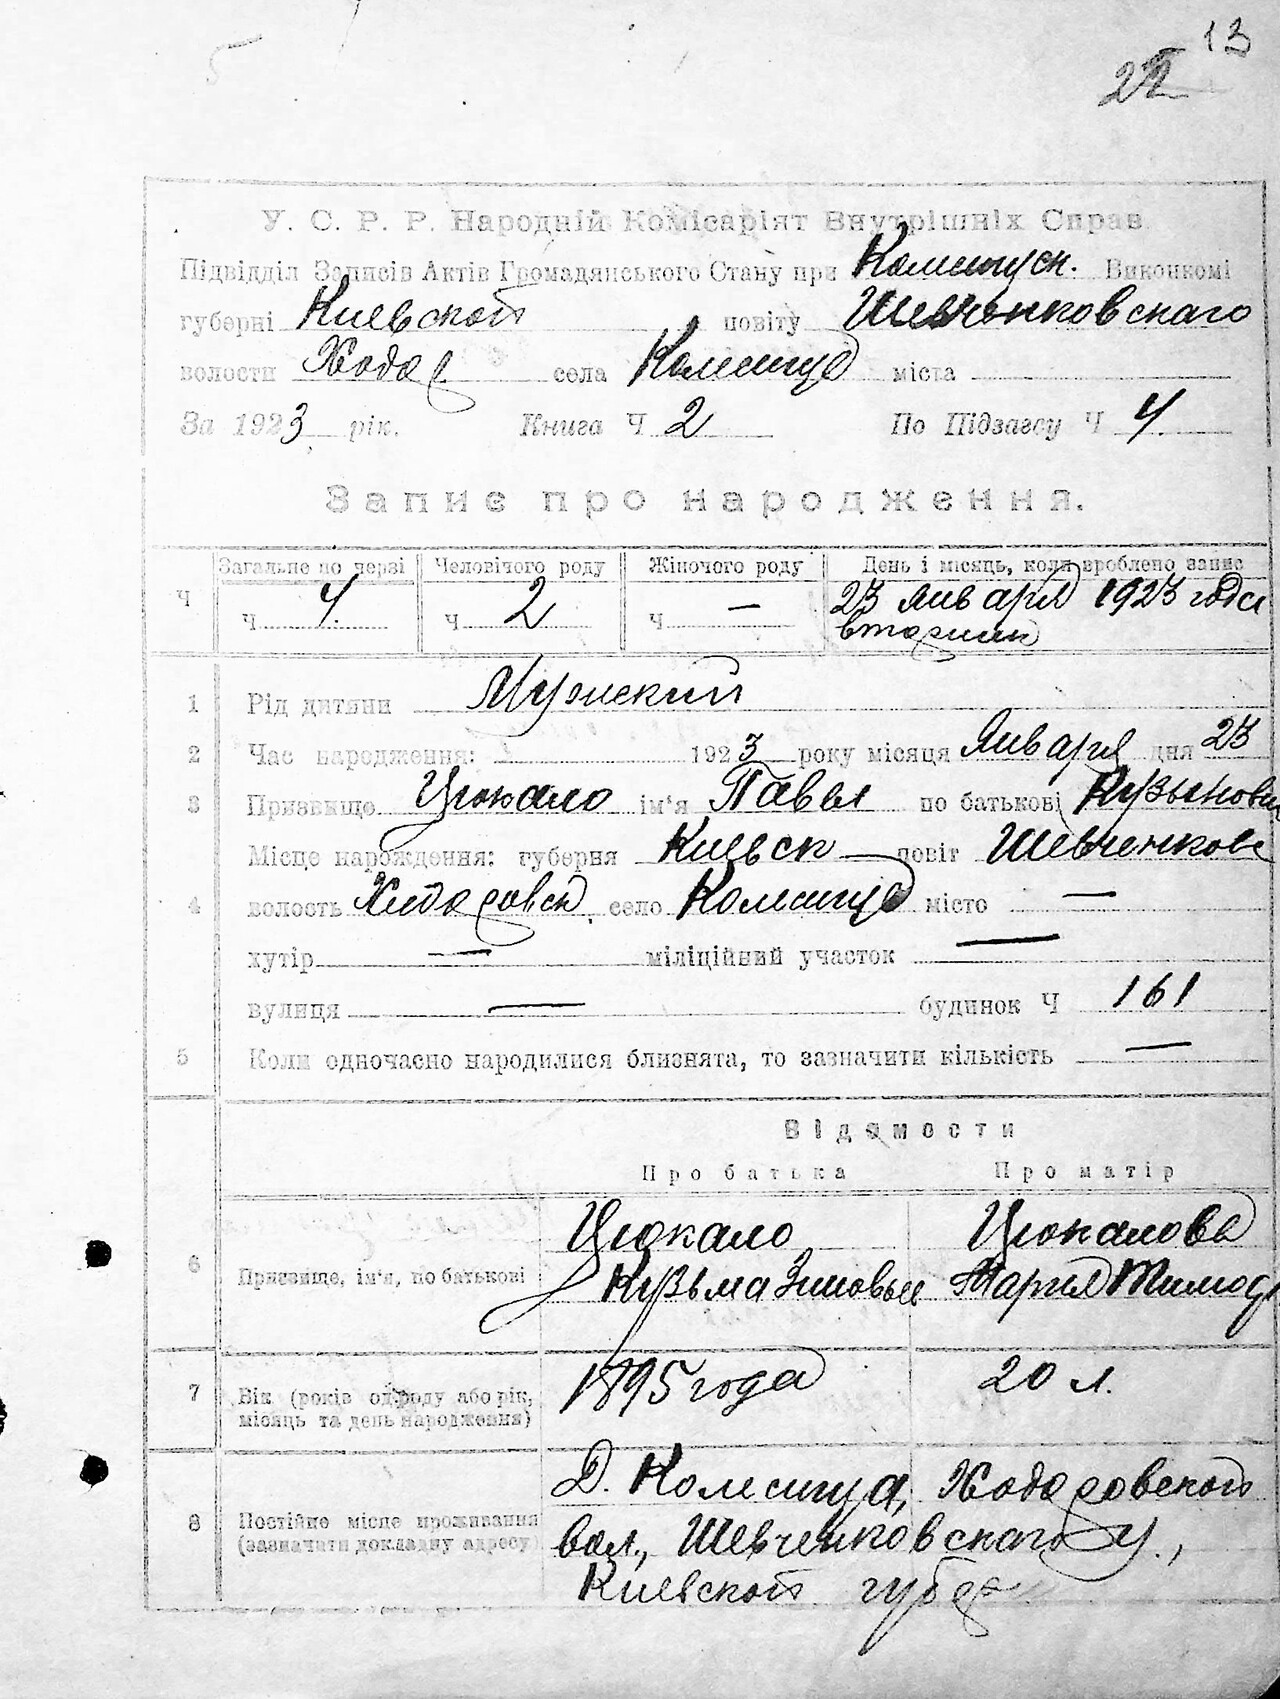 13
22
У. С. Р. Р. Народній Комісаріят Внутрішніх Справ
Підвідділ Записів Актів Громадянського Стану при Колещуск. Виконкомі
губерні Киевской повіту Шевченковскаго
волости Ходор села Колеща міста
За 1923 рік. Книга Ч 2 По Підзагсу Ч 4.
Запис про народження.
Загальне по черзі Человічого роду Жіночого роду День і місяць, коли вроблено запис
Ч Ч 4. Ч 2 Ч — 23 января 1923 года
вторник
1 Рід дитини Мужский
2 Час народження: 1923 року місяця Января дня 23
3 Призвище Цюкало ім'я Павел по батькові Кузьмович
Місце нарождення: губерня Киевск повіт Шевченковс
4 волость Ходоровск, село місто —
хутір — міліційний участок —
вулиця — будинок Ч 161
5 Коли одночасно народилися близнята, то зазначити кількість —
Відомости
Про батька Про матір
Цюкало Цюкалова
6 Призвище, ім'я, по батькові Кузьма Зиновьев Мария Тимоф
7 Вік (років од роду або рік, місяць та день народження) 1895 года 20 л.
Д. Ходоровской
8 Постійне місце проживання (зазначити докладну адресу) вол., Шевченковскаго у.,
Киевской губер